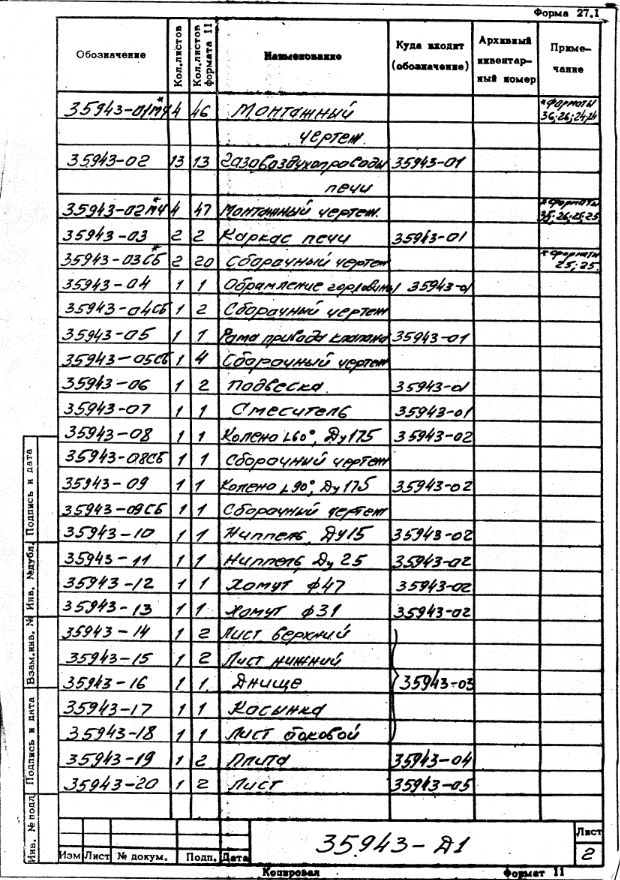 Форма 27.1
Обозначение Кол.листов Кол.листов формата 11 Наименование Куда входит (обозначение) Архивный инвентарный номер Приме-чание
35943-01МЧ* 4 46 Монтажный * форматы
чертеж. 36;26;24;24
35943-02 13 13 Газовоздухопроводы 35943-01
печи
35943-02МЧ* 4 47 Монтажный чертеж. * форматы 35;26;25;25
35943-03 2 2 Каркас печи 35943-01
35943-03СБ* 2 20 Сборочный чертеж * форматы 25;25.
35943-04 1 1 Обрамление горловины 35943-01
35943-04СБ 1 2 Сборочный чертеж
35943-05 1 1 Рама привода клапана 35943-01
35943-05СБ 1 4 Сборочный чертеж
35943-06 1 2 Подвеска 35943-01
35943-07 1 1 Смеситель 35943-01
35943-08 1 1 Колено L60°, Ду175 35943-02
35943-08СБ 1 1 Сборочный чертеж
35943-09 1 1 Колено L90°, Ду175 35943-02
35943-09СБ 1 1 Сборочный чертеж
35943-10 1 1 Ниппель, Ду15 35943-02
35943-11 1 1 Ниппель, Ду25 35943-02
35943-12 1 1 Хомут ф47 35943-02
35943-13 1 1 Хомут ф31 35943-02
35943-14 1 2 Лист верхний
35943-15 1 2 Лист нижний
35943-16 1 1 Днище 35943-03
35943-17 1 1 Косынка
35943-18 1 1 Лист боковой
35943-19 1 2 Плита 35943-04
35943-20 1 2 Лист 35943-05
Инв. № подл Подпись и дата Взам.инв. № Инв. №дубл. Подпись и дата
Изм Лист № докум. Подп. Дата
35943-Д1
Лист
2
Копировал Формат 11